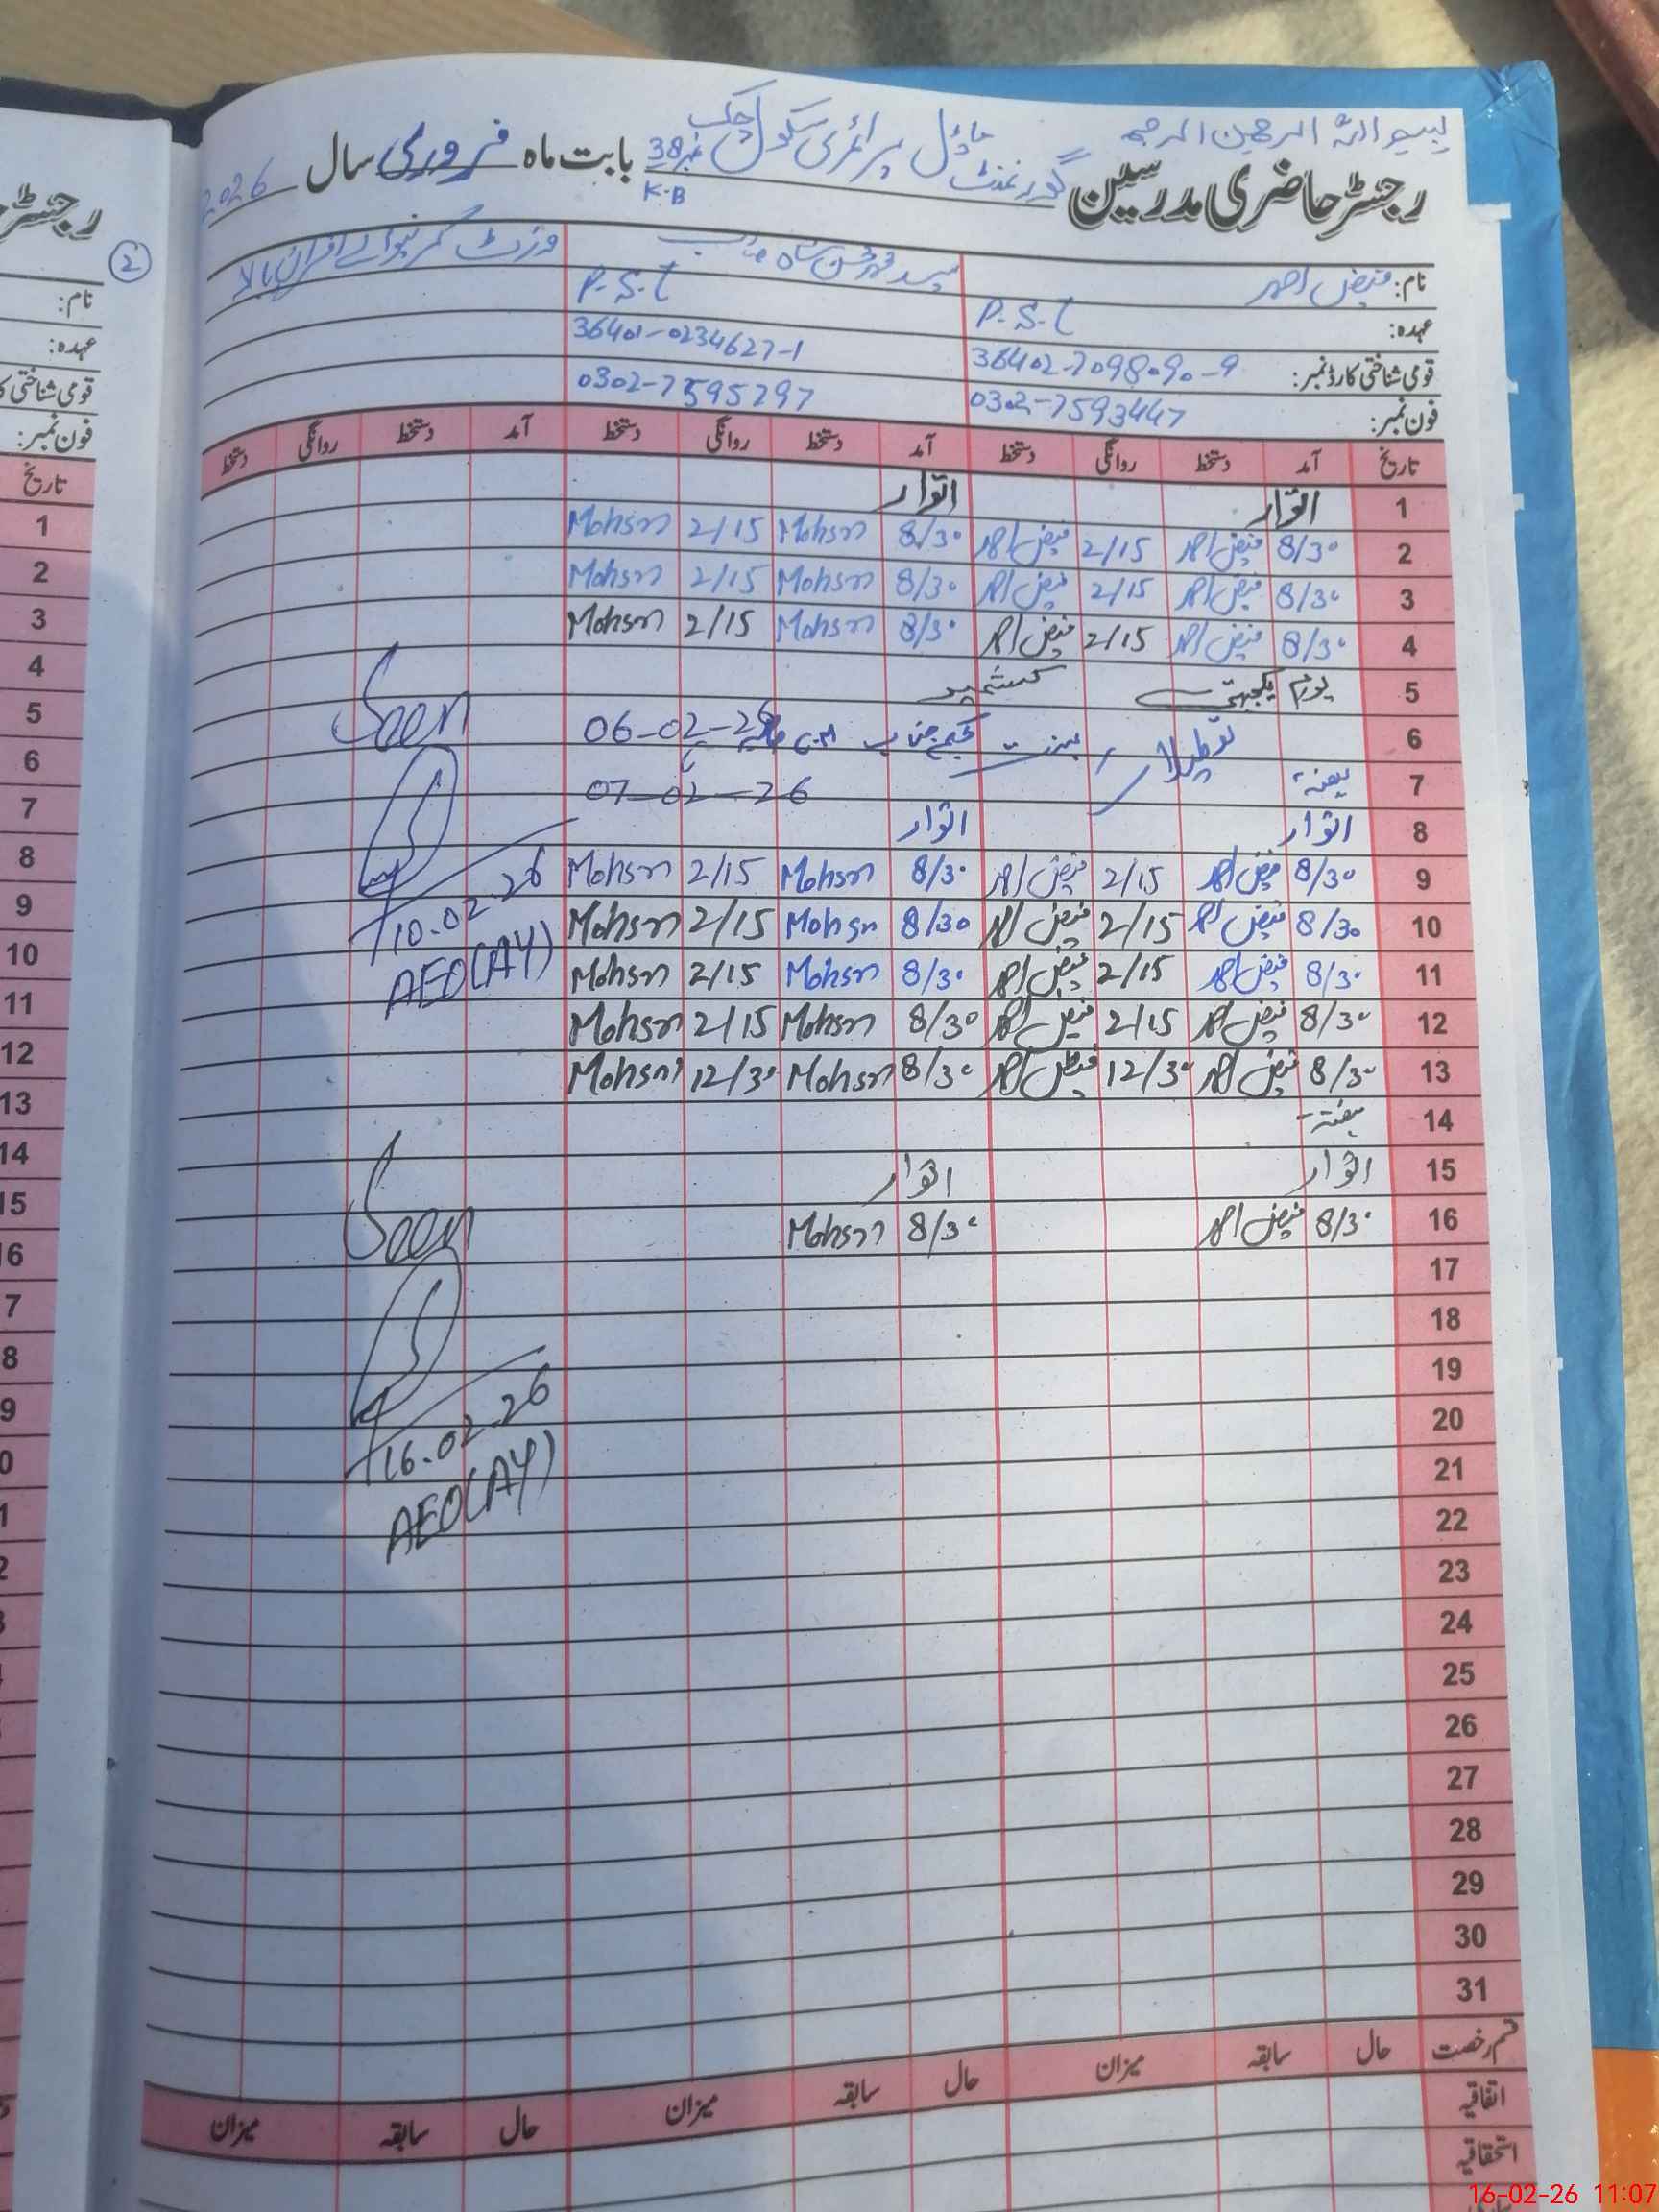 بسم اللہ الرحمن الرحیم
رجسٹر حاضری مدرسین گورنمنٹ ماڈل پرائمری سکول چک نمبر 38 K-B بابت ماہ فروری سال 2026
نام: فیض احمد سید محسن شاہ صاحب وزٹ کرنیوالے افسران بالا
عہدہ: P.S.T P.S.T
قومی شناختی کارڈ نمبر: 36402-7098090-9 36401-0234627-1
فون نمبر: 0302-7593447 0302-7595797
تاریخ آمد دستخط روانگی دستخط آمد دستخط روانگی دستخط آمد دستخط روانگی دستخط
1 اتوار اتوار
2 8/30 فیض احمد 2/15 فیض احمد 8/30 Mohsin 2/15 Mohsin
3 8/30 فیض احمد 2/15 فیض احمد 8/30 Mohsin 2/15 Mohsin
4 8/30 فیض احمد 2/15 فیض احمد 8/30 Mohsin 2/15 Mohsin
5 یوم یکجہتی کشمیر
6 تعطیلات بسنت بحکم جناب C.M 06-02-26 Seen
7 ہفتہ 07-02-26
8 اتوار اتوار
9 8/30 فیض احمد 2/15 فیض احمد 8/30 Mohsin 2/15 Mohsin
10 8/30 فیض احمد 2/15 فیض احمد 8/30 Mohsin 2/15 Mohsin 10.02.26
11 8/30 فیض احمد 2/15 فیض احمد 8/30 Mohsin 2/15 Mohsin AEO(AY)
12 8/30 فیض احمد 2/15 فیض احمد 8/30 Mohsin 2/15 Mohsin
13 8/30 فیض احمد 12/30 فیض احمد 8/30 Mohsin 12/30 Mohsin
14 ہفتہ
15 اتوار اتوار
16 8/30 فیض احمد 8/30 Mohsin Seen
17
18
19
20 16.02.26
21
22 AEO(AY)
23
24
25
26
27
28
29
30
31
قسم رخصت حال سابقہ میزان حال سابقہ میزان حال سابقہ میزان
اتفاقیہ
استحقاقیہ
رجسٹر
2
نام:
عہدہ:
قومی شناختی
فون نمبر:
تاریخ
1
2
3
4
5
6
7
8
9
10
11
12
13
14
15
16-02-26 11:07